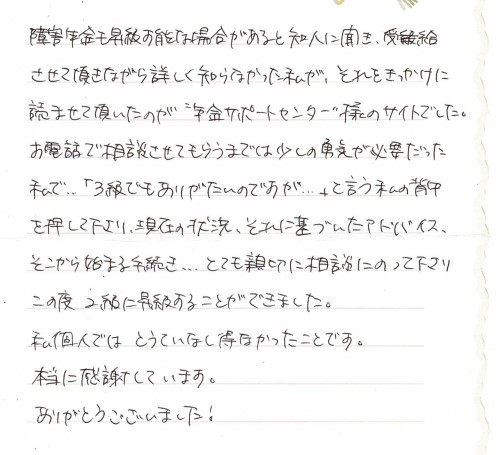 障害年金も昇級可能な場合があると知人に聞き、受給
させて頂きながら詳しく知らなかった私が、それをきっかけに
読ませて頂いたのが"年金サポートセンター"様のサイトでした。
お電話で相談させてもらうまでは少しの勇気が必要だった
私で‥「3級でもありがたいのですが…」と言う私の背中
を押して下さり、現在の状況、それに基づいたアドバイス、
そこから始まる手続き…とても親切に相談にのって下さり
この度 2級に昇級することができました。
私個人では とうていなし得なかったことです。
本当に感謝しています。
ありがとうございました!